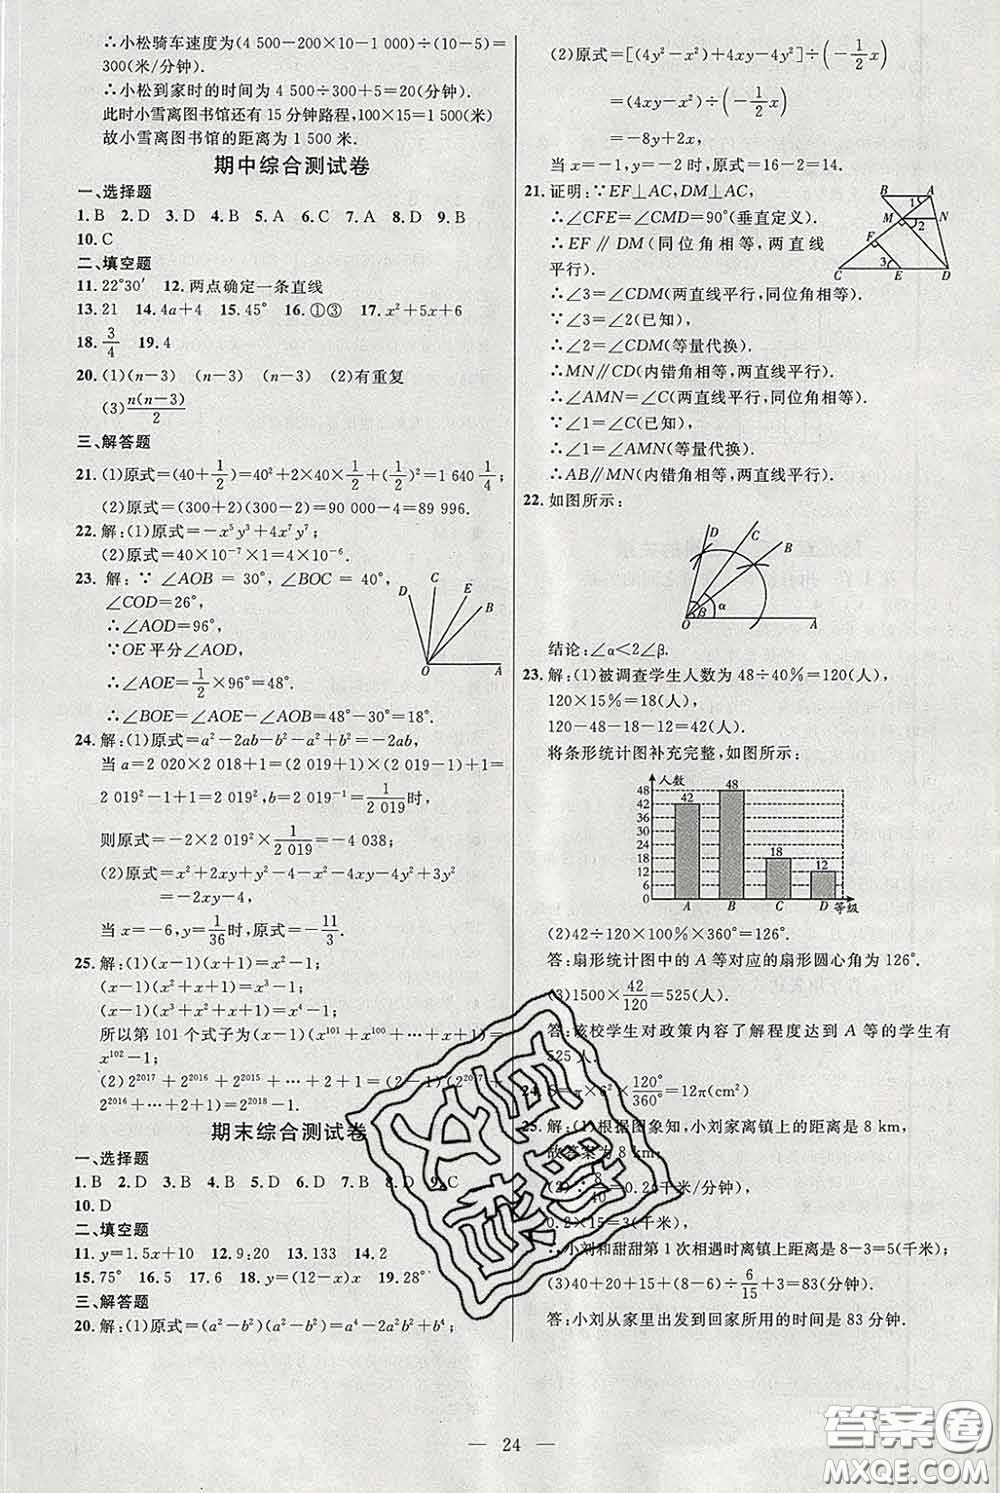 ∴小松骑车速度为(4 500－200×10－1 000)÷(10－5)＝
300(米/分钟).
∴小松到家时的时间为 4 500÷300＋5＝20(分钟).
此时小雪离图书馆还有 15 分钟路程,100×15＝1 500(米)
故小雪离图书馆的距离为 1 500 米.
期中综合测试卷
一、选择题
1.B 2.D 3.D 4.B 5.A 6.C 7.A 8.D 9.B
10.C
二、填空题
11.22°30′ 12.两点确定一条直线
13.21 14.4a＋4 15.45° 16.①③ 17.x²＋5x＋6
18.3/4 19.4
20.(1)(n－3) (n－3) (n－3) (2)有重复
(3)n(n－3)/2
三、解答题
21.(1)原式＝(40＋1/2)＝40²＋2×40×1/2＋(1/2)²＝1 640 1/4;
(2)原式＝(300＋2)(300－2)＝90 000－4＝89 996.
22.解:(1)原式＝－x⁵y³＋4x⁷y⁷;
(2)原式＝40×10⁻⁷×1＝4×10⁻⁶.
23.解:∵∠AOB＝30°,∠BOC＝40°,
∠COD＝26°,
∴∠AOD＝96°,
∵OE平分∠AOD,
∴∠AOE＝1/2×96°＝48°.
∴∠BOE＝∠AOE－∠AOB＝48°－30°＝18°.
D C E B O A
24.解:(1)原式＝a²－2ab－b²－a²＋b²＝－2ab,
当a＝2 020×2 018＋1＝(2 019＋1)×(2 019－1)＋1＝
2 019²－1＋1＝2 019²,b＝1/2 019时,
则原式＝－2×2 019²×1/2 019＝－4 038;
(2)原式＝x²＋2xy＋y²－4－x²－4xy－4y²＋3y²
＝－2xy－4,
当x＝－6,y＝1/36时,原式＝－11/3.
25.解:(1)(x－1)(x＋1)＝x²－1;
(x－1)(x²＋x＋1)＝x³－1;
(x－1)(x³＋x²＋x＋1)＝x⁴－1;
所以第 101 个式子为(x－1)(x¹⁰¹＋x¹⁰⁰＋…＋x＋1)＝
x¹⁰²－1;
(2)2²⁰¹⁷＋2²⁰¹⁶＋2²⁰¹⁵＋…＋2＋1＝(2－1)(2²⁰¹⁷＋
2²⁰¹⁶＋…＋2＋1)＝2²⁰¹⁸－1.
期末综合测试卷
一、选择题
1.B 2.D 3.C 4.B 5.D 6.C 7.B 8.D 9.C
10.D
二、填空题
11.y＝1.5x＋10 12.9:20 13.133 14.2
15.75° 16.4 17.6 18.y＝(12－x)x 19.28°
三、解答题
20.解:(1)原式＝(a²－b²)(a²－b²)＝a⁴－2a²b²＋b⁴;
(2)原式＝[(4y²－x²)－(4y²－4xy)]÷(－1/2x)
＝(4xy－x²)÷(－1/2x)
＝－8y＋2x
当x＝－1,y＝－2时,原式＝16－2＝14.
21.证明:∵EF⊥AC,DM⊥AC,
∴∠CFE＝∠CMD＝90°(垂直定义).
∴EF∥DM(同位角相等,两直线
平行).
∴∠3＝∠CDM(两直线平行,同位角相等).
∵∠3＝∠2(已知),
∴∠2＝∠CDM(等量代换).
∴MN∥CD(内错角相等,两直线平行).
∴∠AMN＝∠C(两直线平行,同位角相等).
∵∠1＝∠C(已知),
∴∠1＝∠AMN(等量代换).
∴AB∥MN(内错角相等,两直线平行).
B A 1 M N 2 F 3 C E D
22.如图所示:
D C B β α O A
结论:∠α＜2∠β.
23.解:(1)被调查学生人数为 48÷40％＝120(人),
120×15％＝18(人),
120－48－18－12＝42(人).
将条形统计图补充完整,如图所示:
人数
48 44 40 36 32 28 24 20 16 12 8 4 0
42 48 18 12
A B C D 等级
(2)42÷120×100％×360°＝126°.
答:扇形统计图中的 A 等对应的扇形圆心角为 126°.
(3)1500×42/120＝525(人).
答:该校学生对政策内容了解程度达到 A 等的学生有
525 人.
24.S＝π×6²×120°/360°＝12π(cm²)
25.解:(1)根据图象知,小刘家离镇上的距离是 8 km,
故答案为 8 km;
(2)∵8/40＝0.2(千米/分钟),
0.2×15＝3(千米),
∴小刘和甜甜第 1 次相遇时离镇上的距离是 8－3＝5(千米);
(3)40＋20＋15÷6/15＋3＝83(分钟).
答:小刘从家里出发到回家所用的时间是 83 分钟.
— 24 —
答案卷
MXQE.COM